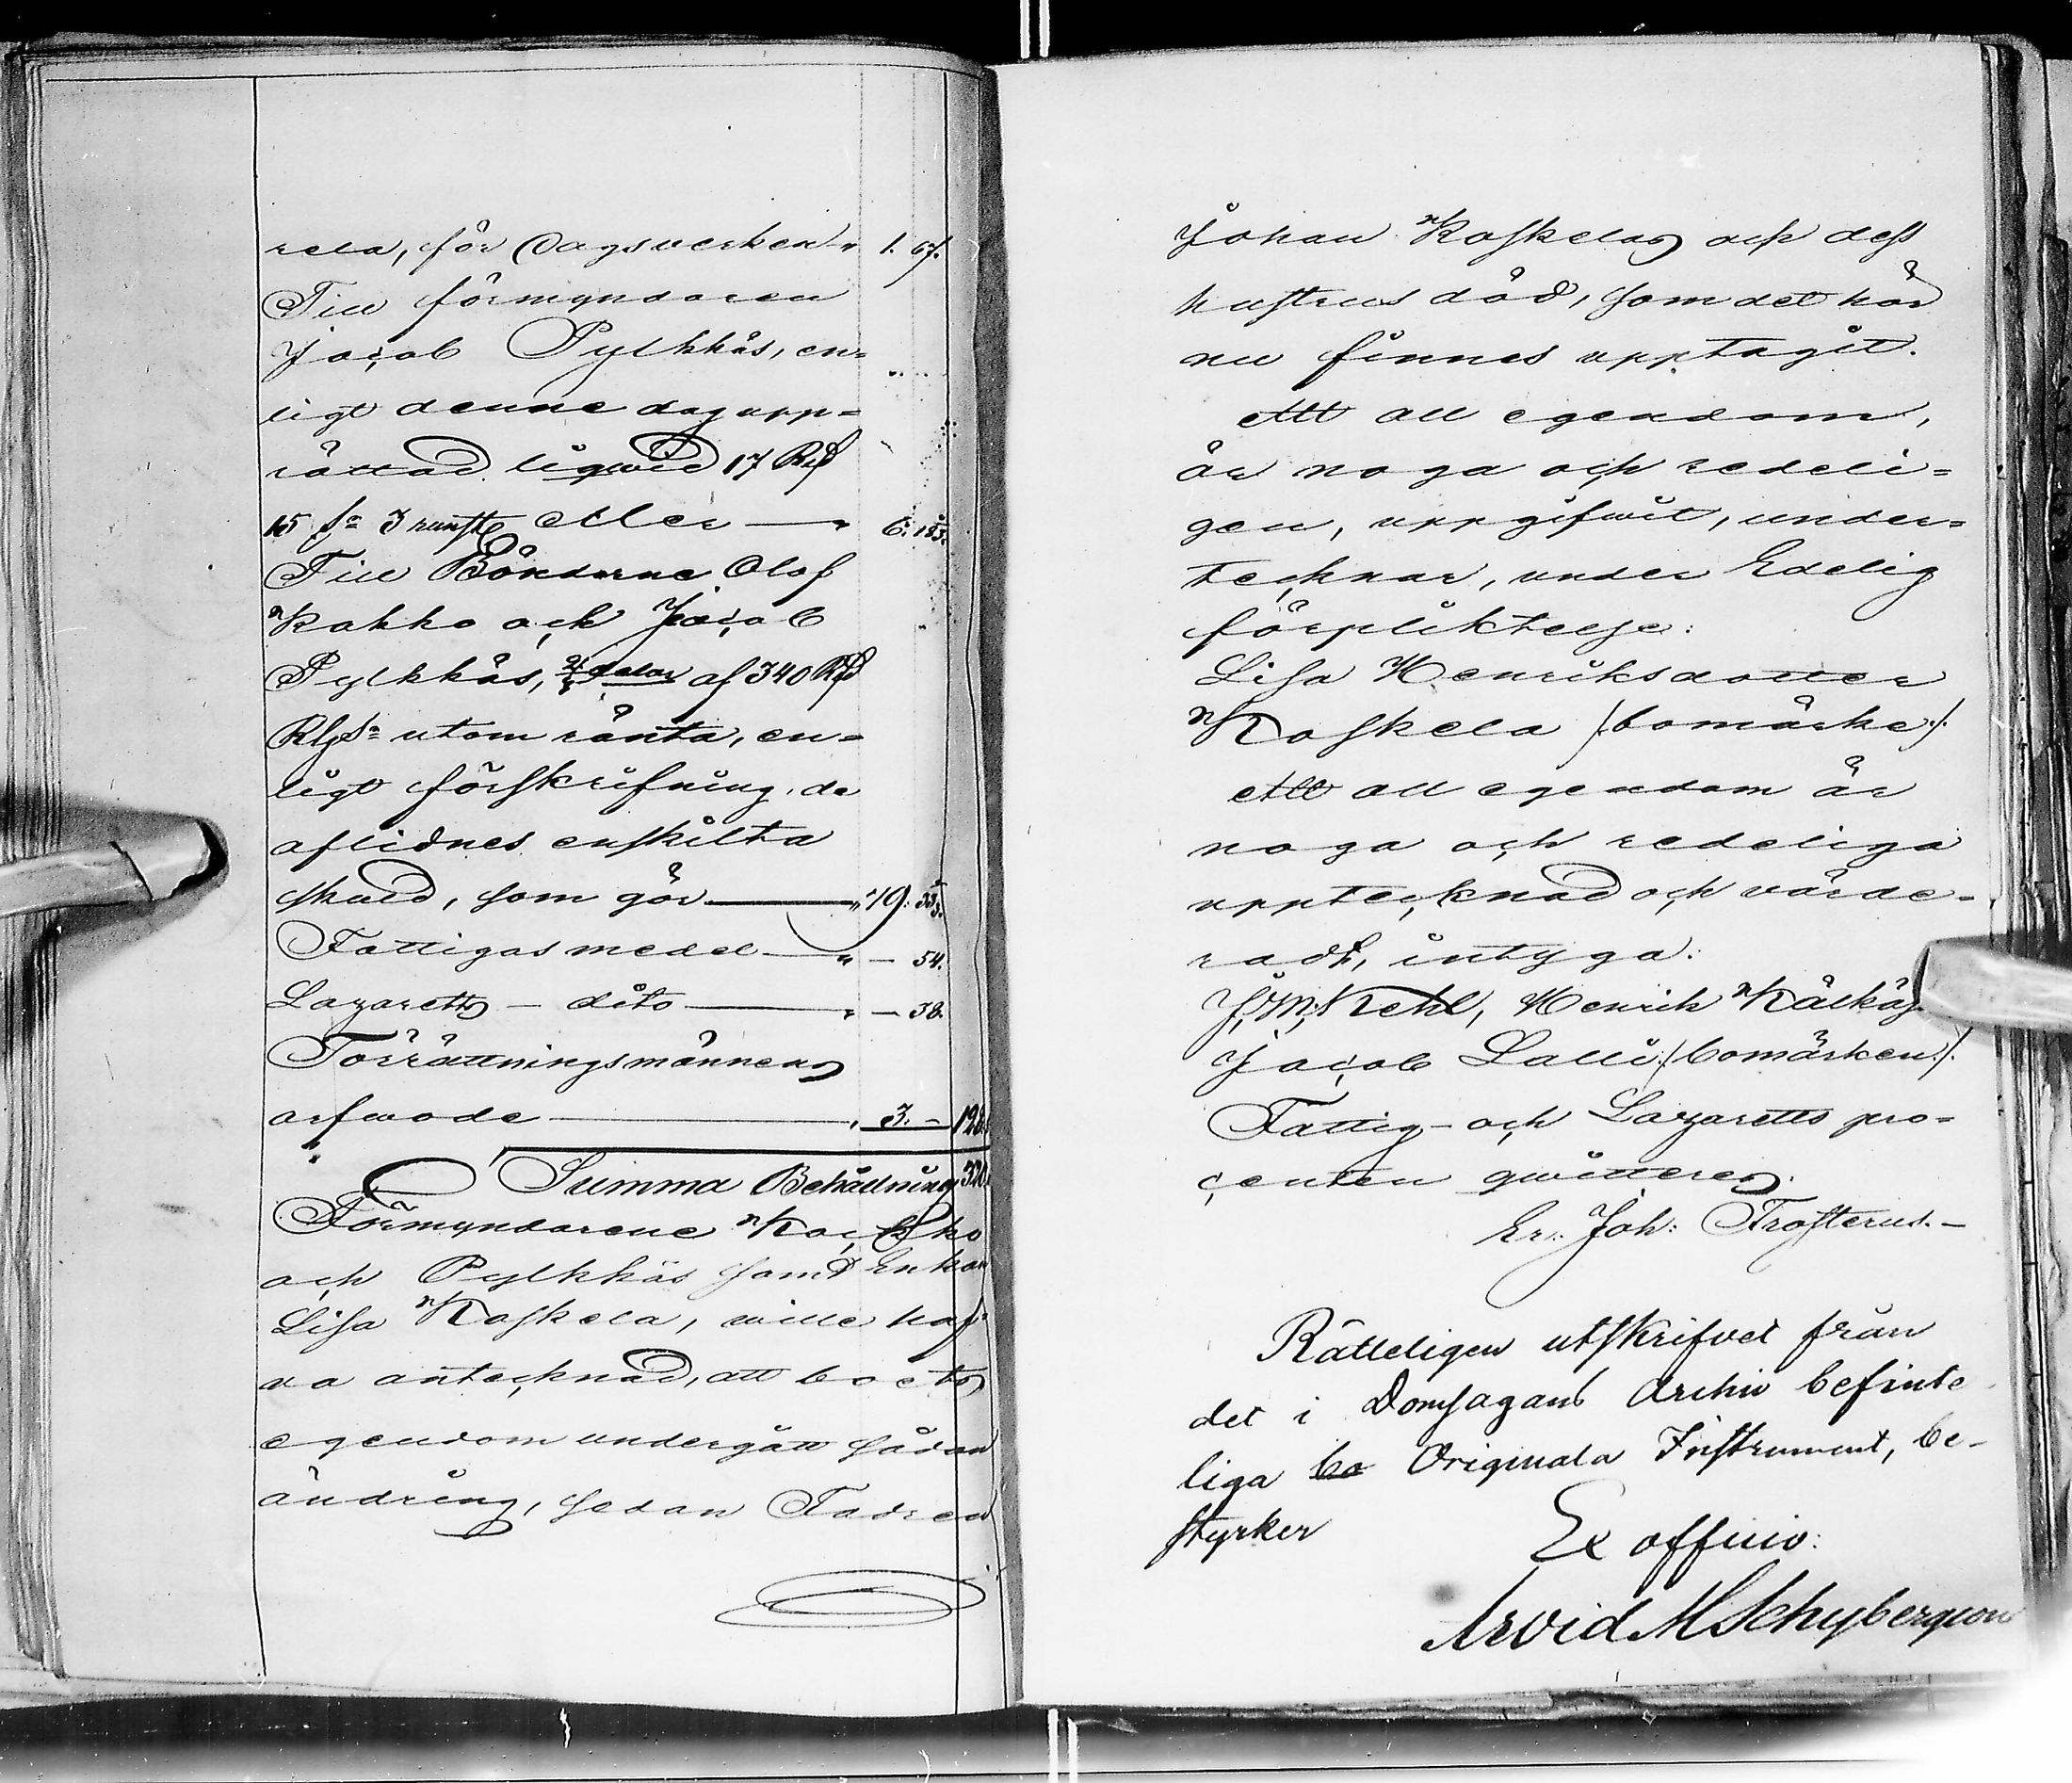 rela, för Dagsverken " 1. 67.
Till förmyndaren
Jacob Pylkkäs, en=
ligt denne dag upp=
rättad liqwid 17 Rd
16 s 3 runst eller — " 6. 12⅗.
Till Bönderne Olof
Kokko och Jacob
Pylkkäs, delar af 340 Rd
Rgs utom ränta, en=
ligt förskrifning, de
aflidnes enskilta
skuld, som gör — " 79. 33⅓.
Fattigas medel — " — 54.
Lazaretts — dito — " — 38.
Förrättningsmännens
arfwode — " 3. — 128.
Summa Behållning 320.
Förmyndarene Kockko
och Pylkkäs samt Enkan
Lisa Koskela, wille haf=
va antecknad, att boets
egendom undergått sådan
ändring, sedan Fadren
Johan Koskelas och dess
hustrus död, som det här
nu finnes upptagit.
Att all egendom,
är noga och redeli=
gen, uppgifwit, under=
tecknar, under Edelig
förpliktelse:
Lisa Henriksdotter
Koskela /:bomärke:/.
Att all egendom är
noga och redeliga
upptecknad och värde=
radt, intyga.
J. M. Kehl, Henrik
Jacob Lalli /:bomärken:/.
Fattig- och Lazaretts pro=
centen qwitteras.
Er. Joh: Frosterus. —
Rätteligen utskrifvet från
det i Domsagans Archiv befinte
liga bo Originala Instrument, be-
styrker
Ex officio:
Arvid M Schybergson